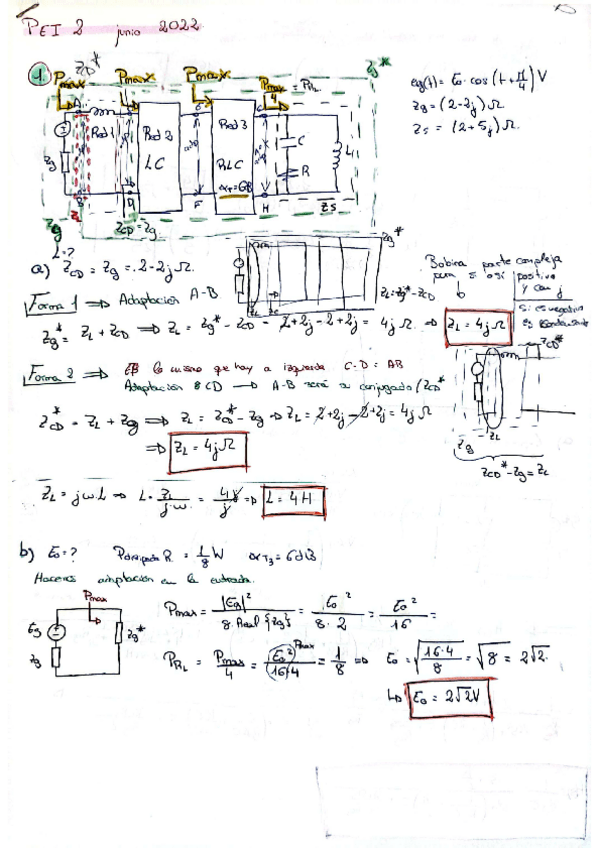 PEI 2 junio 2022
1.
Pmax Pmax Pmax Pmax/4 = PRL
ZCD* Zg*
eg(t) = E0·cos(t+π/4) V
Zg = (2-2j) Ω
Zs = (2+5j) Ω.
A C E G
Red 1 Red 2 LC Red 3 RLC C L R
αT=6dB
Zg B D F H Zs
Zg ZCD=Zg
L=?
a) ZCD = Zg = 2-2j Ω.
Zg*
ZL=Zg*-ZCD
Bobina parte compleja
positiva
y con j
si es negativo
es condensador
Forma 1 ⇒ Adaptación A-B
Zg* = ZL + ZCD ⇒ ZL = Zg* - ZCD = 2+2j-2+2j = 4j Ω ⇒ ZL = 4j Ω
Forma 2 ⇒ lo mismo que hay a izquierda C-D = AB
Adaptación CD → A-B será su conjugado (ZCD*
ZCD* = ZL + Zg ⇒ ZL = ZCD* - Zg ⇒ ZL = 2+2j-2+2j = 4j Ω
⇒ ZL = 4j Ω
ZCD*
ZL
Zg
ZCD*-Zg = ZL
ZL = jωL ⇒ L = ZL/j·ω = 4j/j ⇒ L = 4 H
b) E0=? Pdisipada R = 1/8 W αT3 = 6dB
Hacemos adaptación en la entrada.
Pmax
Eg
Zg
Zg*
Pmax = |Eg|²/8·Real{Zg} = E0²/8·2 = E0²/16 =
PRL = Pmax/4 = E0²/16·4 = 1/8 ⇒ E0 = √(16·4/8) = √8 = 2√2.
Pmax
↳ E0 = 2√2 V